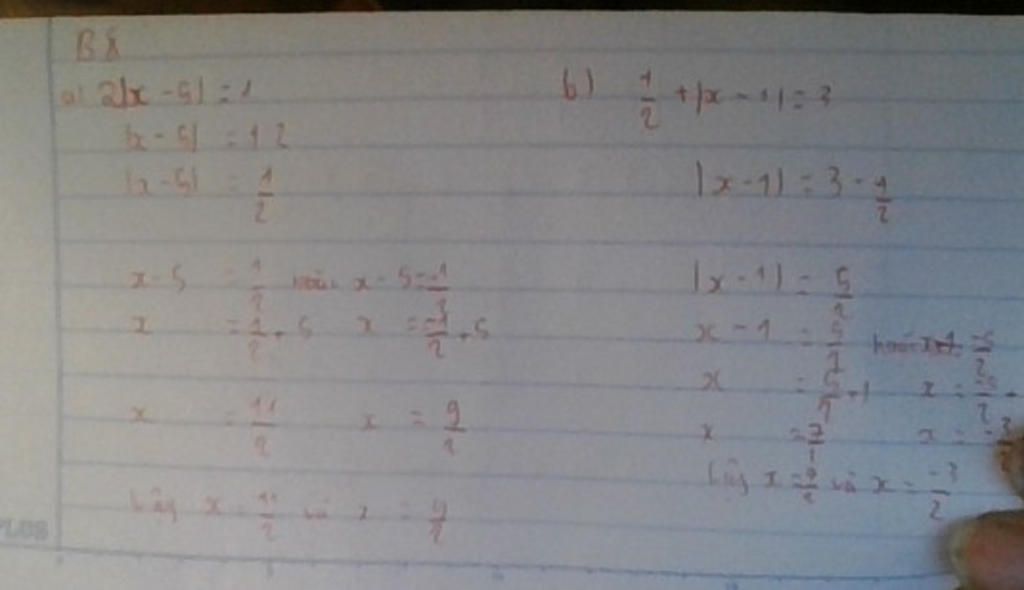 B8
a) 2|x - 5| = 1
|x - 5| = 1 2
|x - 5| = 1/2
x - 5 = 1/2 hoặc x - 5 = -1/2
x = 1/2 + 5 x = -1/2 + 5
x = 11/2 x = 9/2
Vậy x = 11/2 và x = 9/2
b) 1/2 + |x - 1| = 3
|x - 1| = 3 - 1/2
|x - 1| = 5/2
x - 1 = 5/2 hoặc x-1 = -5/2
x = 5/2 + 1 x = -5/2 +
x = 7/2 x = -3/2
Vậy x = 7/2 và x = -3/2
PLUS